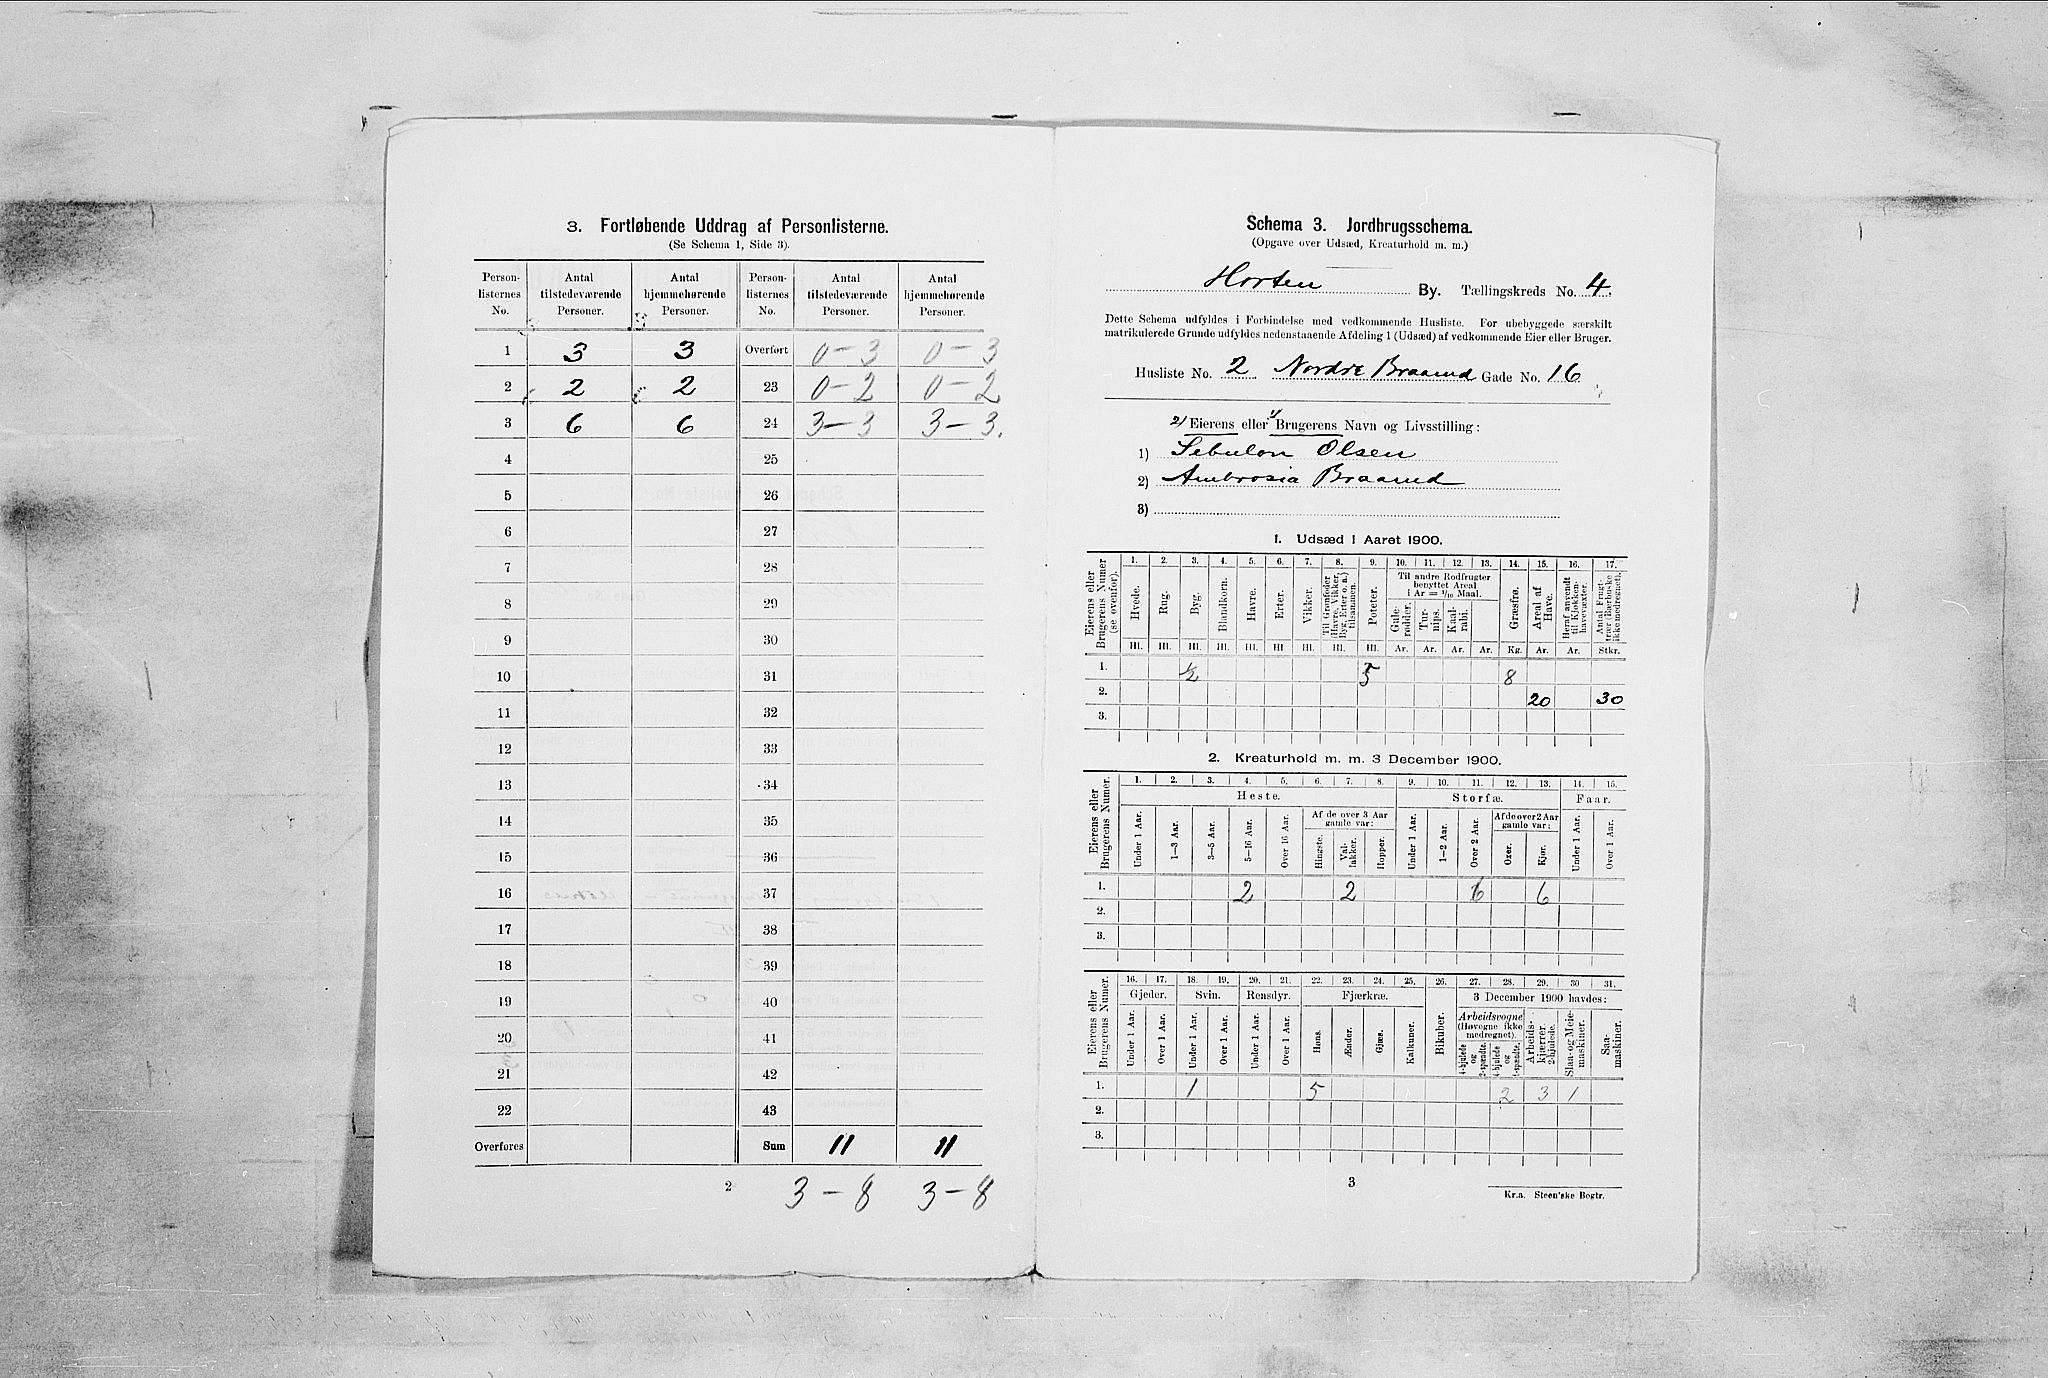 3. Fortløbende Uddrag af Personlisterne.
(Se Schema 1, Side 3).
Person-listernes No. | Antal tilstedeværende Personer. | Antal hjemmehørende Personer. | Person-listernes No. | Antal tilstedeværende Personer. | Antal hjemmehørende Personer.
1 | 3 | 3 | Overført | 0 – 3 | 0 – 3
2 | 2 | 2 | 23 | 0 – 2 | 0 – 2
3 | 6 | 6 | 24 | 3 – 3 | 3 – 3.
4 | 25
5 | 26
6 | 27
7 | 28
8 | 29
9 | 30
10 | 31
11 | 32
12 | 33
13 | 34
14 | 35
15 | 36
16 | 37
17 | 38
18 | 39
19 | 40
20 | 41
21 | 42
22 | 43
Overføres | Sum | 11 | 11
2 3 – 8 3 – 8
Schema 3. Jordbrugsschema.
(Opgave over Udsæd, Kreaturhold m. m.)
Horten By. Tællingskreds No. 4.
Dette Schema udfyldes i Forbindelse med vedkommende Husliste. For ubebyggede særskilt
matrikulerede Grunde udfyldes nedenstaaende Afdeling 1 (Udsæd) af vedkommende Eier eller Bruger.
Husliste No. 2 Nordre Braarud Gade No. 16
2) Eierens eller 1) Brugerens Navn og Livsstilling:
1) Sebulon Olsen
2) Ambrosia Braarud
3)
1. Udsæd i Aaret 1900.
Eierens eller Brugerens Numer (se ovenfor). | 1. | 2. | 3. | 4. | 5. | 6. | 7. | 8. | 9. | 10. | 11. | 12. | 13. | 14. | 15. | 16. | 17.
Hvede. | Rug. | Byg. | Blandkorn. | Havre. | Erter. | Vikker. | Til Grønfoder (Havre, Vikker, Byg, Erter o. a.) tilsammen. | Poteter. | Til andre Rodfrugter benyttet Areal i Ar = 1/10 Maal. | Gule-rødder. | Tur-nips. | Kaal-rabi. | Græsfrø. | Areal af Have. | Heraf anvendt til Kjøkken-havevæxter. | Antal Frugt-trær (Bærbuske ikke medregnet).
Hl. | Hl. | Hl. | Hl. | Hl. | Hl | Hl. | Hl. | Hl. | Ar. | Ar. | Ar. | Ar. | Kg. | Ar. | Ar. | Stkr.
1. | 1/2 | 5 | 8
2. | 20 | 30
3.
2. Kreaturhold m. m. 3 December 1900.
Eierens eller Brugerens Numer. | 1. | 2. | 3. | 4. | 5. | 6. | 7. | 8. | 9. | 10. | 11. | 12. | 13. | 14. | 15.
Heste. | Storfæ. | Faar.
Af de over 3 Aar gamle var: | Af de over 2 Aar gamle var:
Under 1 Aar. | 1–3 Aar. | 3–5 Aar. | 5–16 Aar. | Over 16 Aar. | Hingste. | Val-lakker. | Hopper. | Under 1 Aar. | 1–2 Aar. | Over 2 Aar. | Oxer. | Kjør. | Under 1 Aar. | Over 1 Aar.
1. | 2 | 2 | 6 | 6
2.
3.
Eierens eller Brugerens Numer. | 16. | 17. | 18. | 19. | 20. | 21. | 22. | 23. | 24. | 25. | 26. | 27. | 28. | 29. | 30 | 31.
Gjeder. | Svin. | Rensdyr. | Fjærkræ. | Bikuber. | 3 December 1900 havdes:
Arbeidsvogne (Høvogne ikke medregnet).
Under 1 Aar. | Over 1 Aar. | Under 1 Aar. | Over 1 Aar. | Under 1 Aar. | Over 1 Aar. | Høns. | Ænder. | Gjæs. | Kalkuner. | 4-hjulede og 2-spændte. | 4-hjulede og 1-spændte. | Arbeids-kjærrer 2-hjulede. | Slaa- og Meie-maskiner. | Saa-maskiner.
1. | 1 | 5 | 2 | 3 | 1
2.
3.
3
Kr.a. Steen'ske Bogtr.